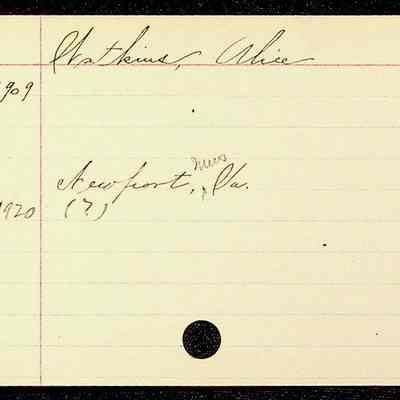 Watkins, Alice
1909
Newport, News Va.
1920 (?)